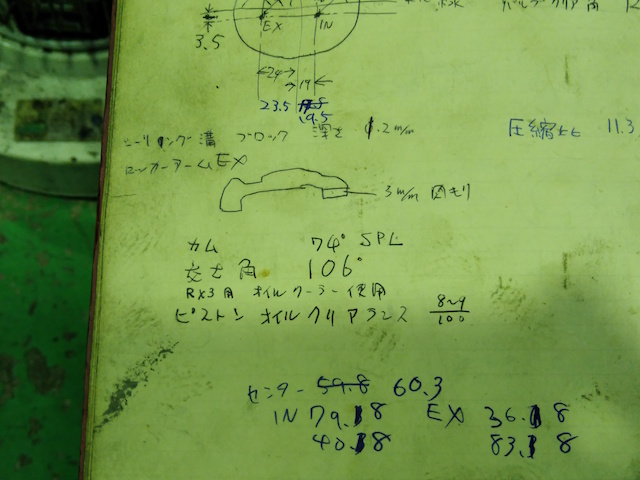 EX IN
3.5
24 19
23.5 19.5
シーリング溝 ブロック 深さ 1.2 m/m 圧縮比 11.3
ロッカーアームEX
3 m/m 肉もり
カム 74° SPL
交差角 106°
RX3用 オイルクーラー使用
ピストン オイルクリアランス 8~9/100
センター 59.8 60.3
IN 79.18 EX 36.18
40.18 83.18